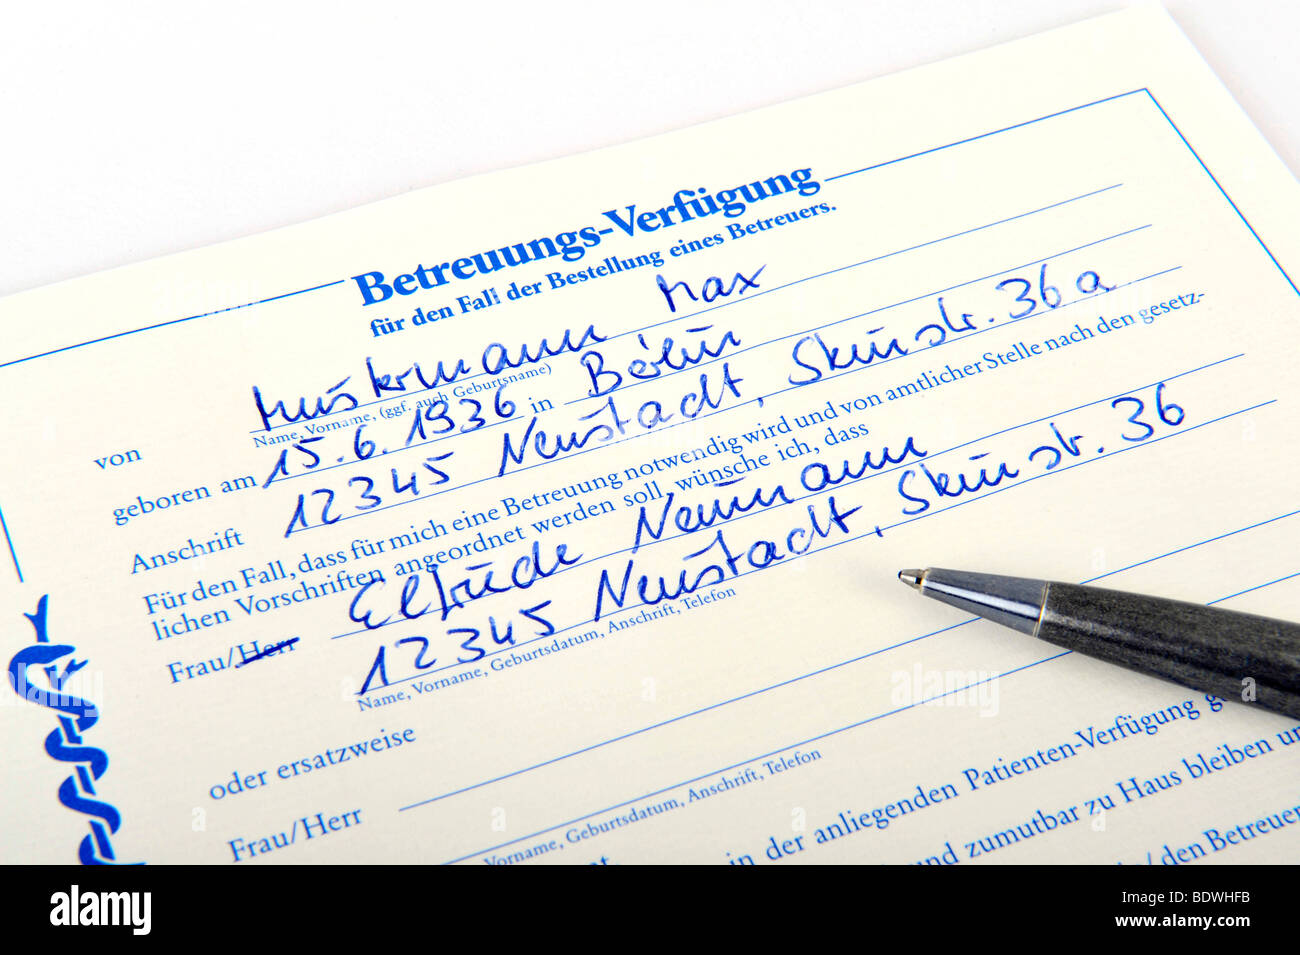 Betreuungs-Verfügung
für den Fall der Bestellung eines Betreuers.
von Mustermann Max
Name, Vorname, (ggf. auch Geburtsname)
geboren am 15.6.1936 in Berlin
Anschrift 12345 Neustadt, str. 36a
Für den Fall, dass für mich eine Betreuung notwendig wird und von amtlicher Stelle nach den gesetz-
lichen Vorschriften angeordnet werden soll, wünsche ich, dass
Frau/Herr Elfriede Neumann
12345 Neustadt, str. 36
Name, Vorname, Geburtsdatum, Anschrift, Telefon
oder ersatzweise
Frau/Herr
Vorname, Geburtsdatum, Anschrift, Telefon
in der anliegenden Patienten-Verfügung
und zumutbar zu Haus bleiben
den Betreuer
alamy
Image ID: BDWHFB
www.alamy.com